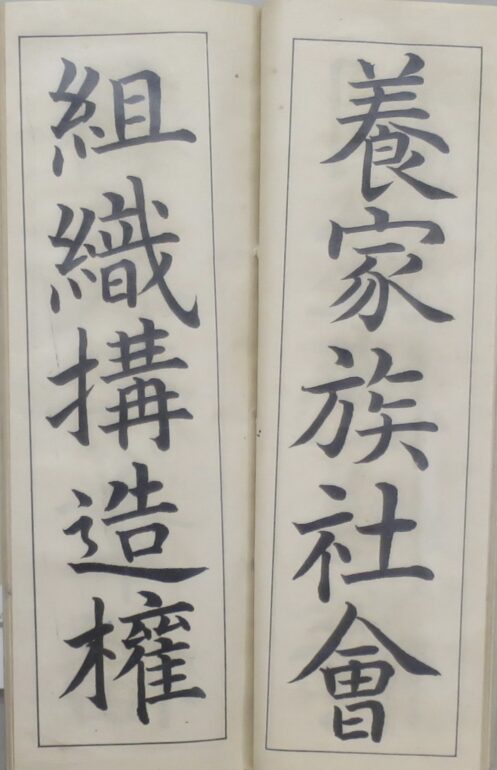 養家族社會
組織搆造權